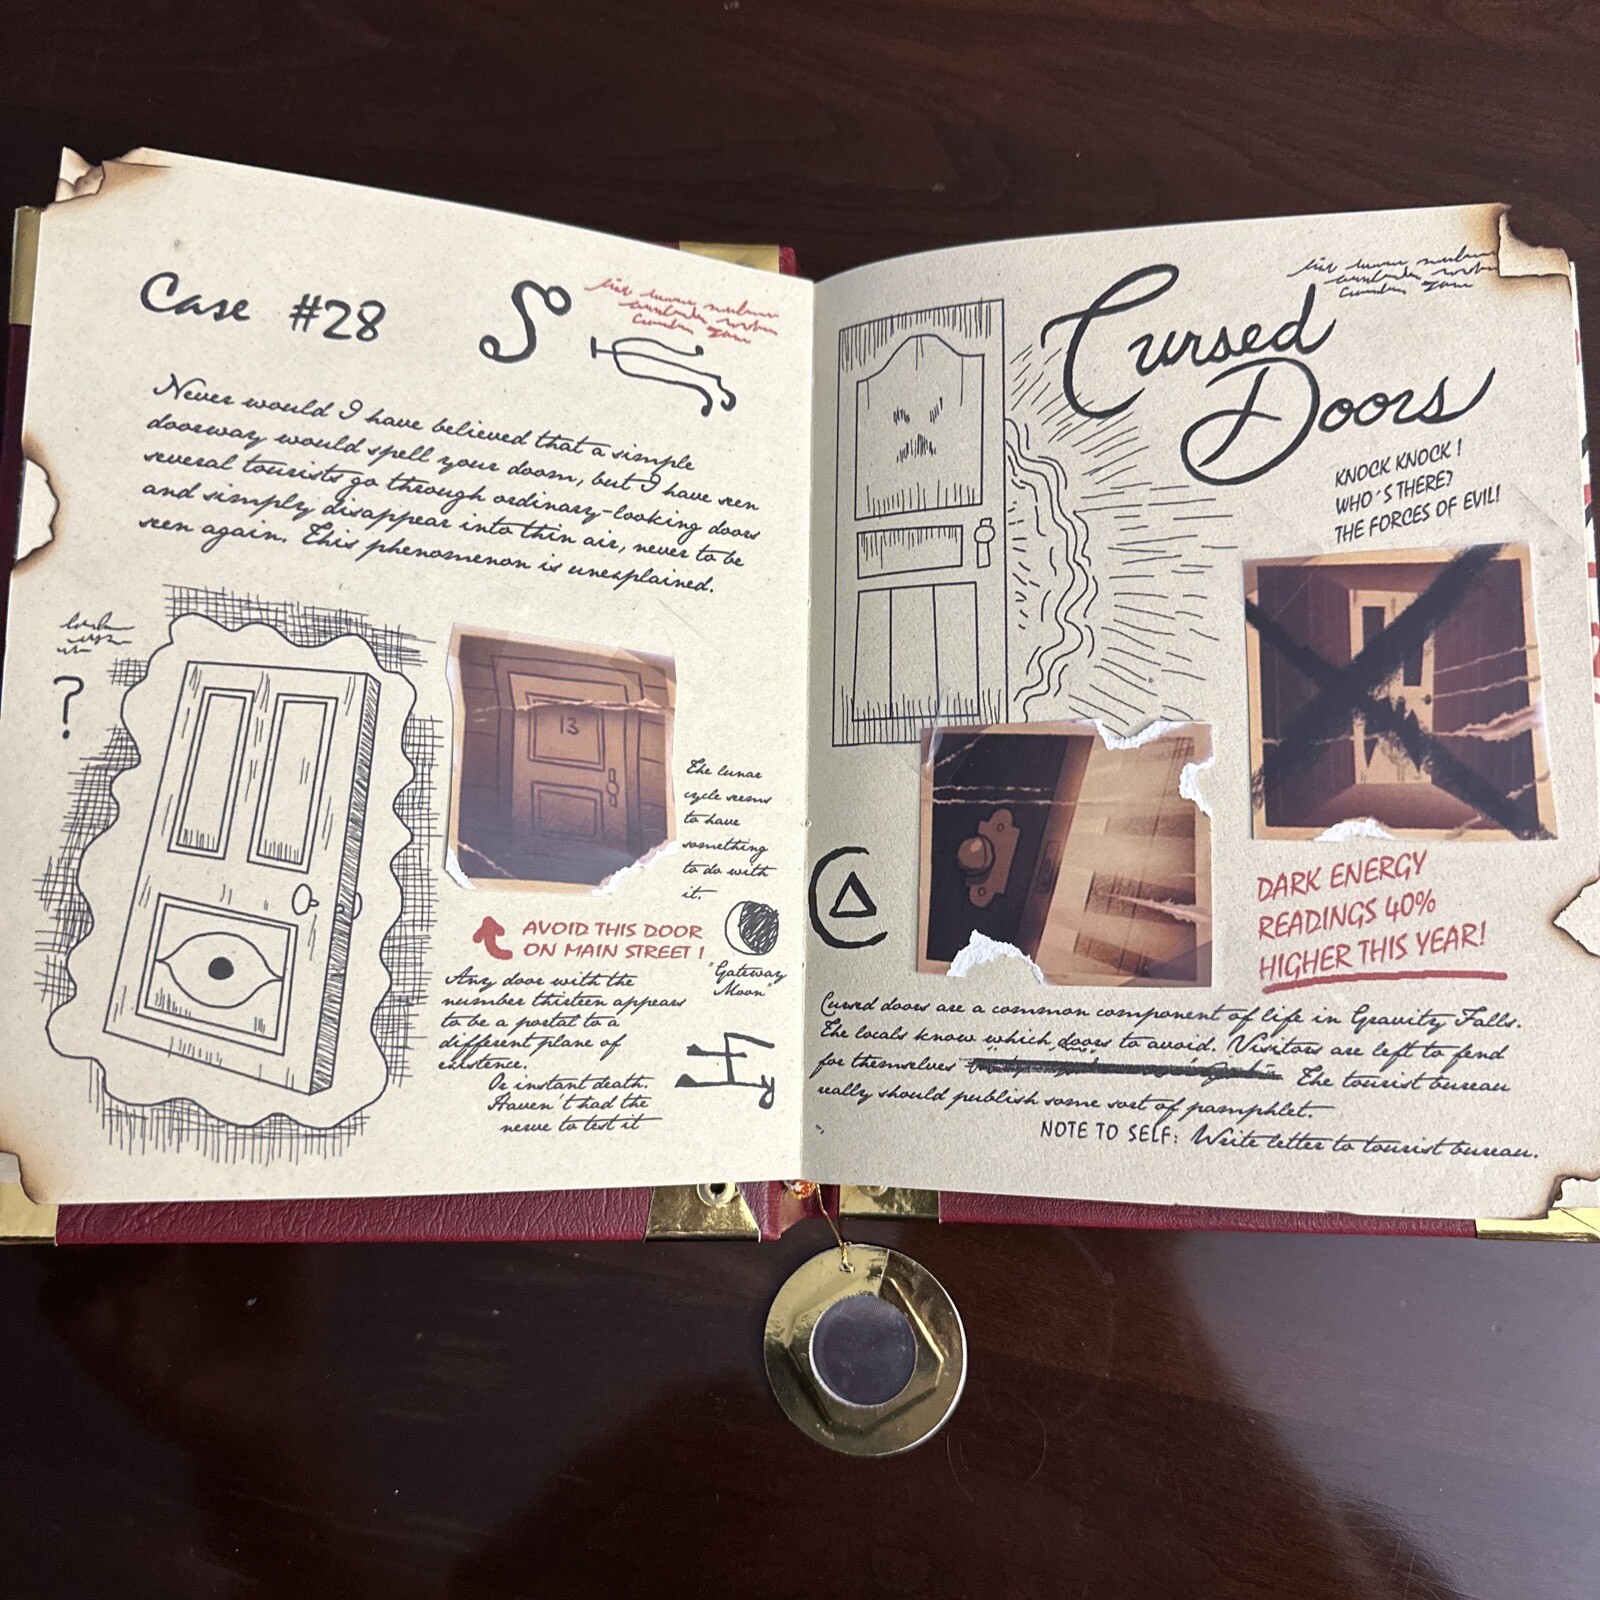 Case #28
Never would I have believed that a simple
doorway would spell your doom, but I have seen
several tourists go through ordinary-looking doors
and simply disappear into thin air, never to be
seen again. This phenomenon is unexplained.
?
13
The lunar
cycle seems
to have
something
to do with
it.
"Gateway
Moon"
AVOID THIS DOOR
ON MAIN STREET!
Any door with the
number thirteen appears
to be a portal to a
different plane of
existence.
Or instant death.
Haven't had the
nerve to test it
Cursed
Doors
KNOCK KNOCK!
WHO'S THERE?
THE FORCES OF EVIL!
DARK ENERGY
READINGS 40%
HIGHER THIS YEAR!
Cursed doors are a common component of life in Gravity Falls.
The locals know which doors to avoid. Visitors are left to fend
for themselves The tourist bureau
really should publish some sort of pamphlet.
NOTE TO SELF: Write letter to tourist bureau.